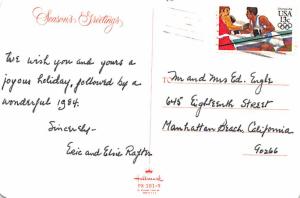 Season's Greetings
We wish you and yours a
joyous holiday, followed by a
wonderful 1984.
Sincerely-
Eric and Elsie
USA
13c
TO:
Mr and Mrs Ed. Engle
645 Eighteenth Street
Manhattan Beach, California
90266
Hallmark